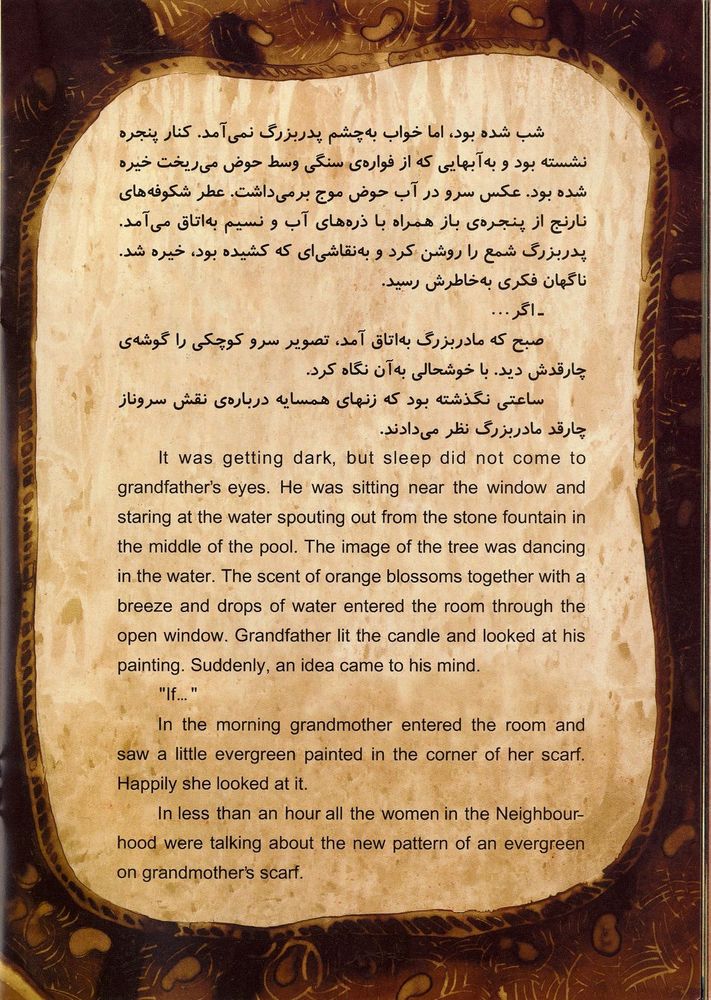 شب شده بود، اما خواب به‌چشم پدربزرگ نمی‌آمد. کنار پنجره
نشسته بود و به‌آبهایی که از فواره‌ی سنگی وسط حوض می‌ریخت خیره
شده بود. عکس سرو در آب حوض موج برمی‌داشت. عطر شکوفه‌های
نارنج از پنجره‌ی باز همراه با ذره‌های آب و نسیم به‌اتاق می‌آمد.
پدربزرگ شمع را روشن کرد و به‌نقاشی‌ای که کشیده بود، خیره شد.
ناگهان فکری به‌خاطرش رسید.
ـ اگر...
صبح که مادربزرگ به‌اتاق آمد، تصویر سرو کوچکی را گوشه‌ی
چارقدش دید. با خوشحالی به‌آن نگاه کرد.
ساعتی نگذشته بود که زنهای همسایه درباره‌ی نقش سروناز
چارقد مادربزرگ نظر می‌دادند.
It was getting dark, but sleep did not come to
grandfather's eyes. He was sitting near the window and
staring at the water spouting out from the stone fountain in
the middle of the pool. The image of the tree was dancing
in the water. The scent of orange blossoms together with a
breeze and drops of water entered the room through the
open window. Grandfather lit the candle and looked at his
painting. Suddenly, an idea came to his mind.
"If..."
In the morning grandmother entered the room and
saw a little evergreen painted in the corner of her scarf.
Happily she looked at it.
In less than an hour all the women in the Neighbour-
hood were talking about the new pattern of an evergreen
on grandmother's scarf.